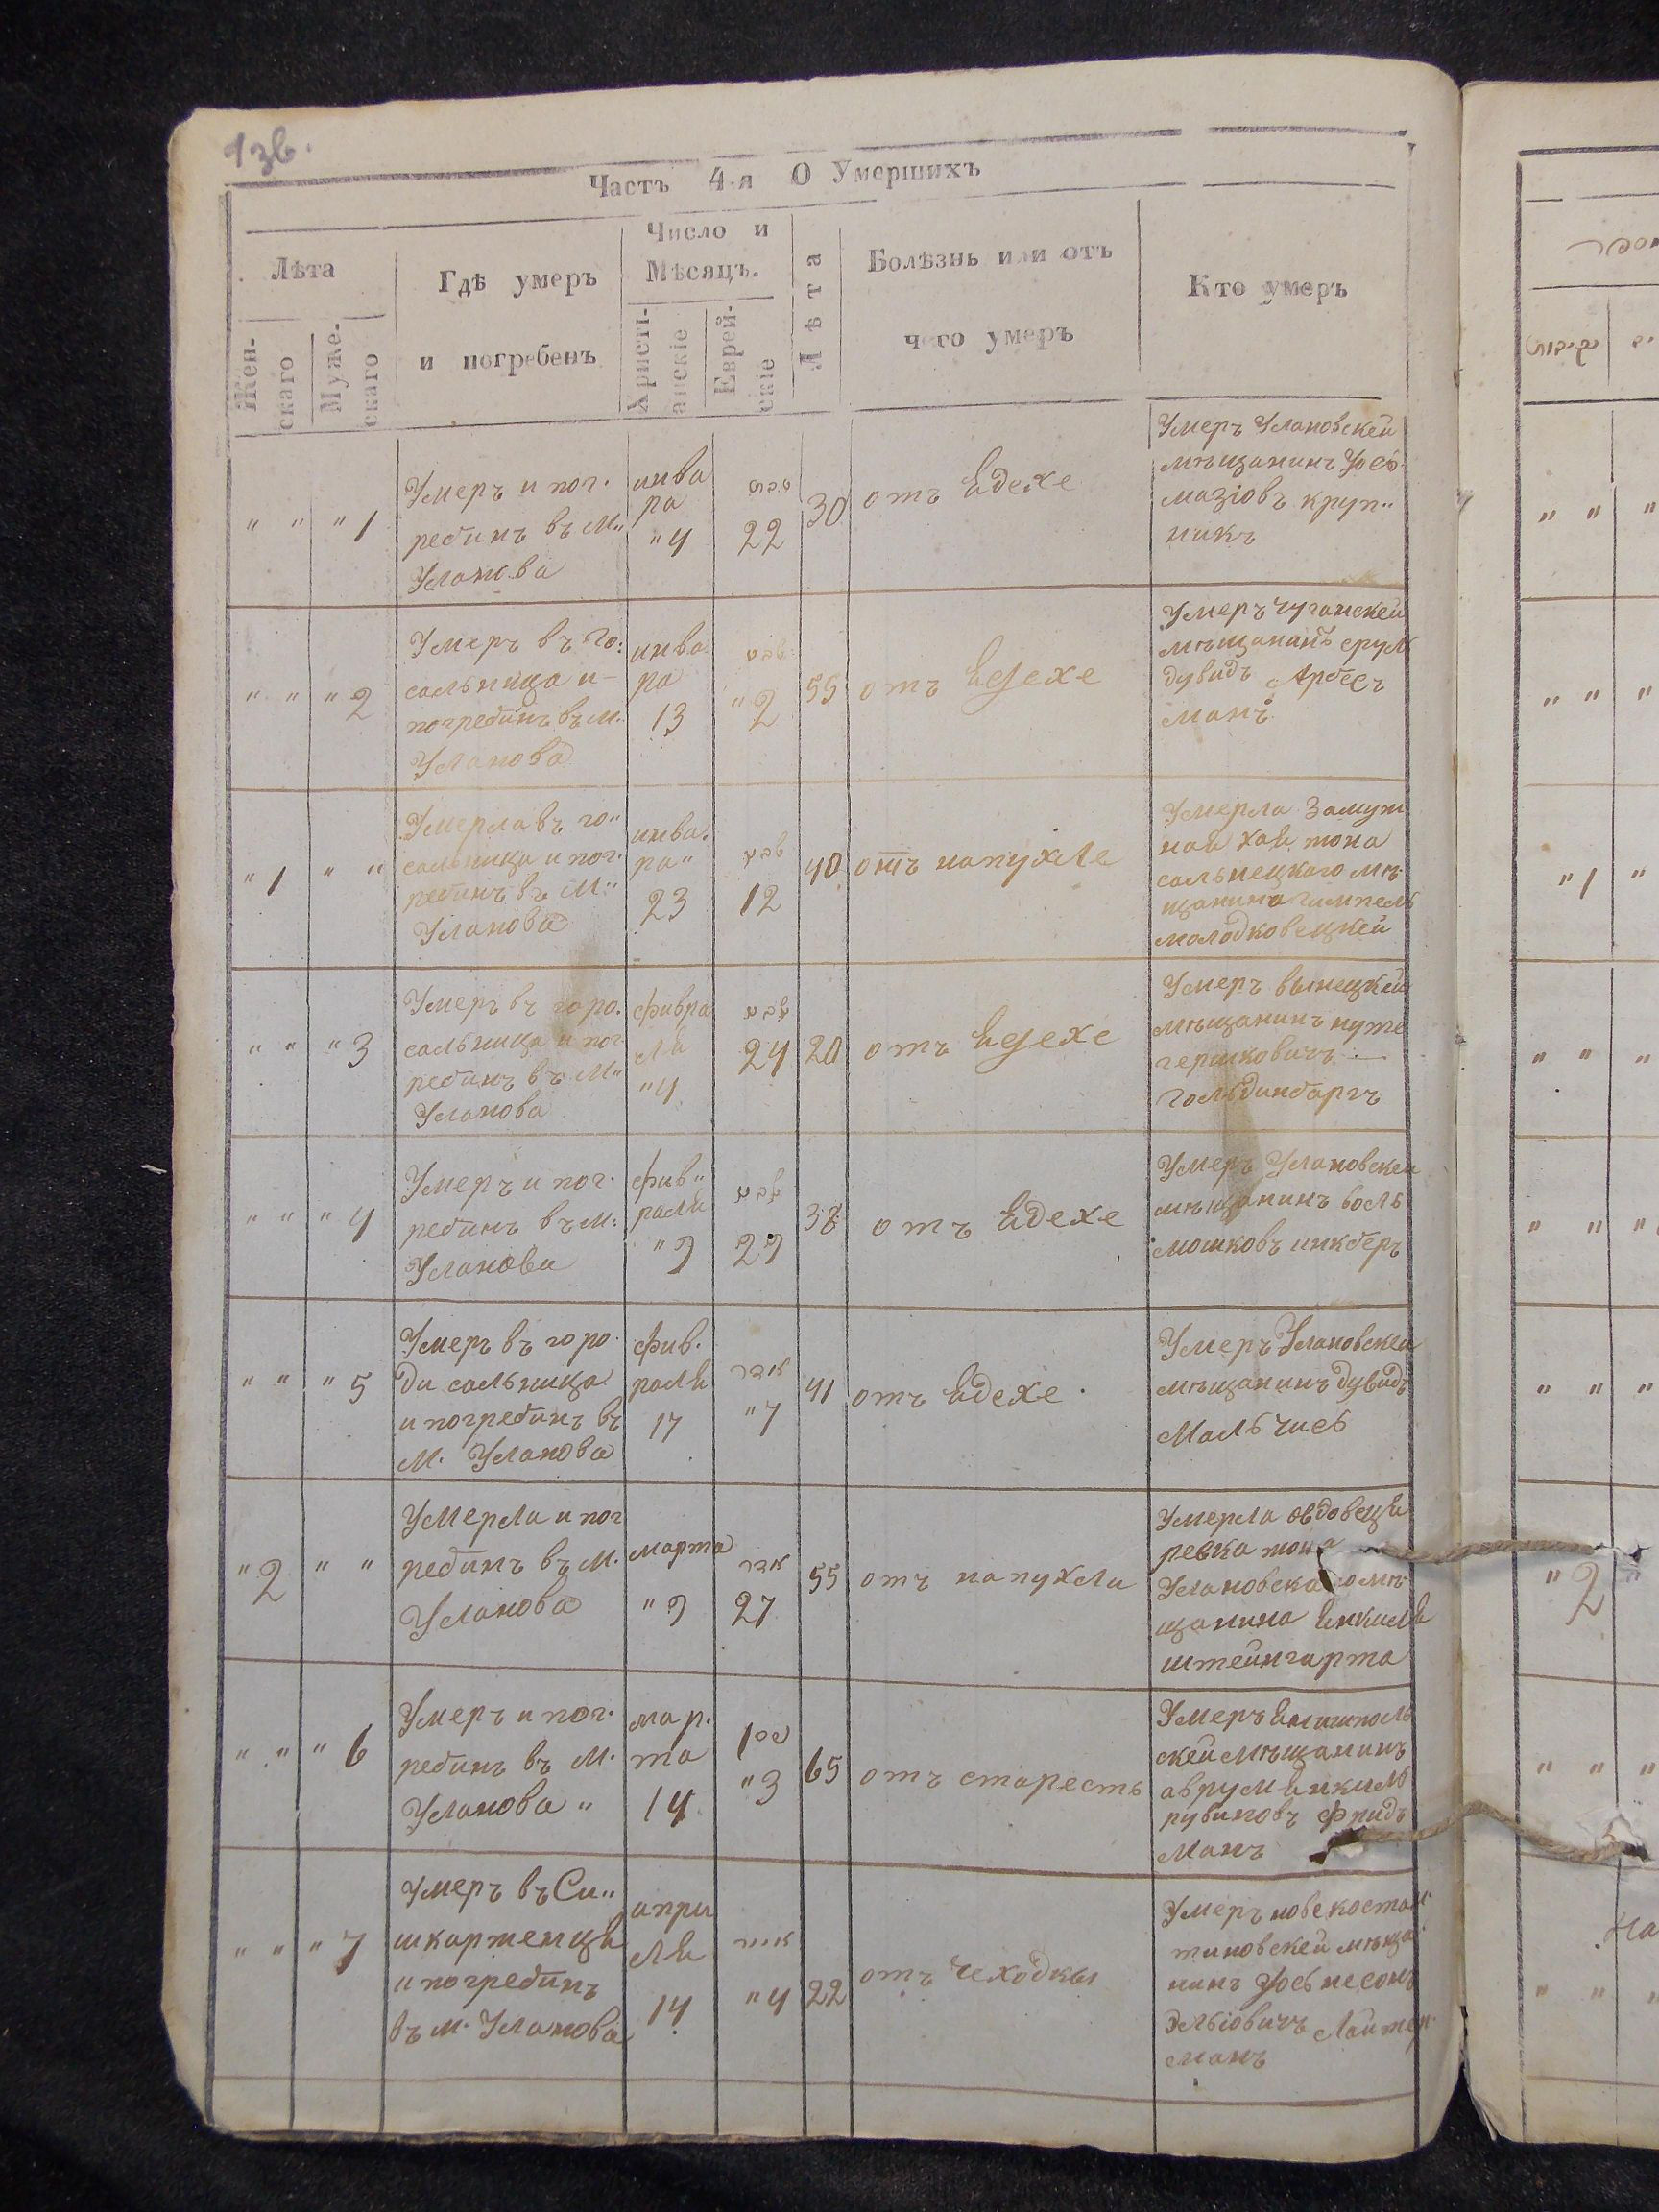 13в.
Часть 4-я О Умершихъ
Лѣта
Жен-
скаго
Муже-
скаго
Гдѣ умеръ
и погребенъ
Число и
Мѣсяцъ.
Христі-
анскіе
Еврей-
скіе
Лѣта
Болѣзнь или отъ
чего умеръ
Кто умеръ
" " "1
Умеръ и пог.
ребинъ въ м"
Уланова
инва
ра
"4
טבת
22
30
отъ вдехе
Умеръ Улановскей
мѣщанинъ Уось
мазіовъ круп"
никъ
" " "2
Умеръ въ го:
сальница и-
погребинъ въ м.
Уланова
инва
ра
13
שבט
"2
55
отъ вдехе
Умеръ чуганскей
мѣщанинъ срул
дувидъ Арбес
манъ
"1 " "
Умерла въ го"
сальница и пог.
ребинъ въ м"
Уланова
инва.
ра"
23
שבט
12
40
отъ напухле
Умерла Замуж
ная хая жона
сальнецкаго мѣ
щанина гимпель
молодковецкей
" " "3
Умеръ въ горо.
сальница и пог
ребинъ въ м"
Уланова
фивра
ля
"4
שבט
24
20
отъ вдехе
Умеръ вынецкей
мѣщанинъ нуте
гершковичъ
гольдинбаргъ
" " "4
Умеръ и пог.
ребинъ въ м:
Уланова
фив"
раля
"9
שבט
29
38
отъ вдехе
Умеръ Улановскей
мѣщанинъ вось
мошковъ инкберъ
" " "5
Умеръ въ горо.
ди сальница
и погребинъ въ
м. Уланова
фив.
раля
17
אדר
"7
41
отъ вдехе
Умеръ Улановскей
мѣщанинъ дувидъ
Мальчись
"2 " "
Умерла и пог
ребинъ въ м.
Уланова
марта
"9
אדר
27
55
отъ напухли
Умерла овдовеця
ревка жона
Улановска омѣ
щанина енкиля
штейнгарта
" " "6
Умеръ и пог.
ребинъ въ м.
Уланова "
мар.
та
14
ניסן
"3
65
отъ старесть
Умеръ
скей мѣщанинъ
аврумъ енкиль
рувиновъ фридъ
манъ
" " "7
Умеръ въ Си"
шкаржемця
и погребинъ
въ м. Уланова
апри
ля
14
אייר
"4
22
отъ чеходкы
Умеръ новекостан.
тиновскей мѣща
нинъ Уось несонъ
Эльіовичъ Лайтер.
манъ
" " "
" " "
"1 "
" " "
" " "
" " "
"2
" " "
На
" " "